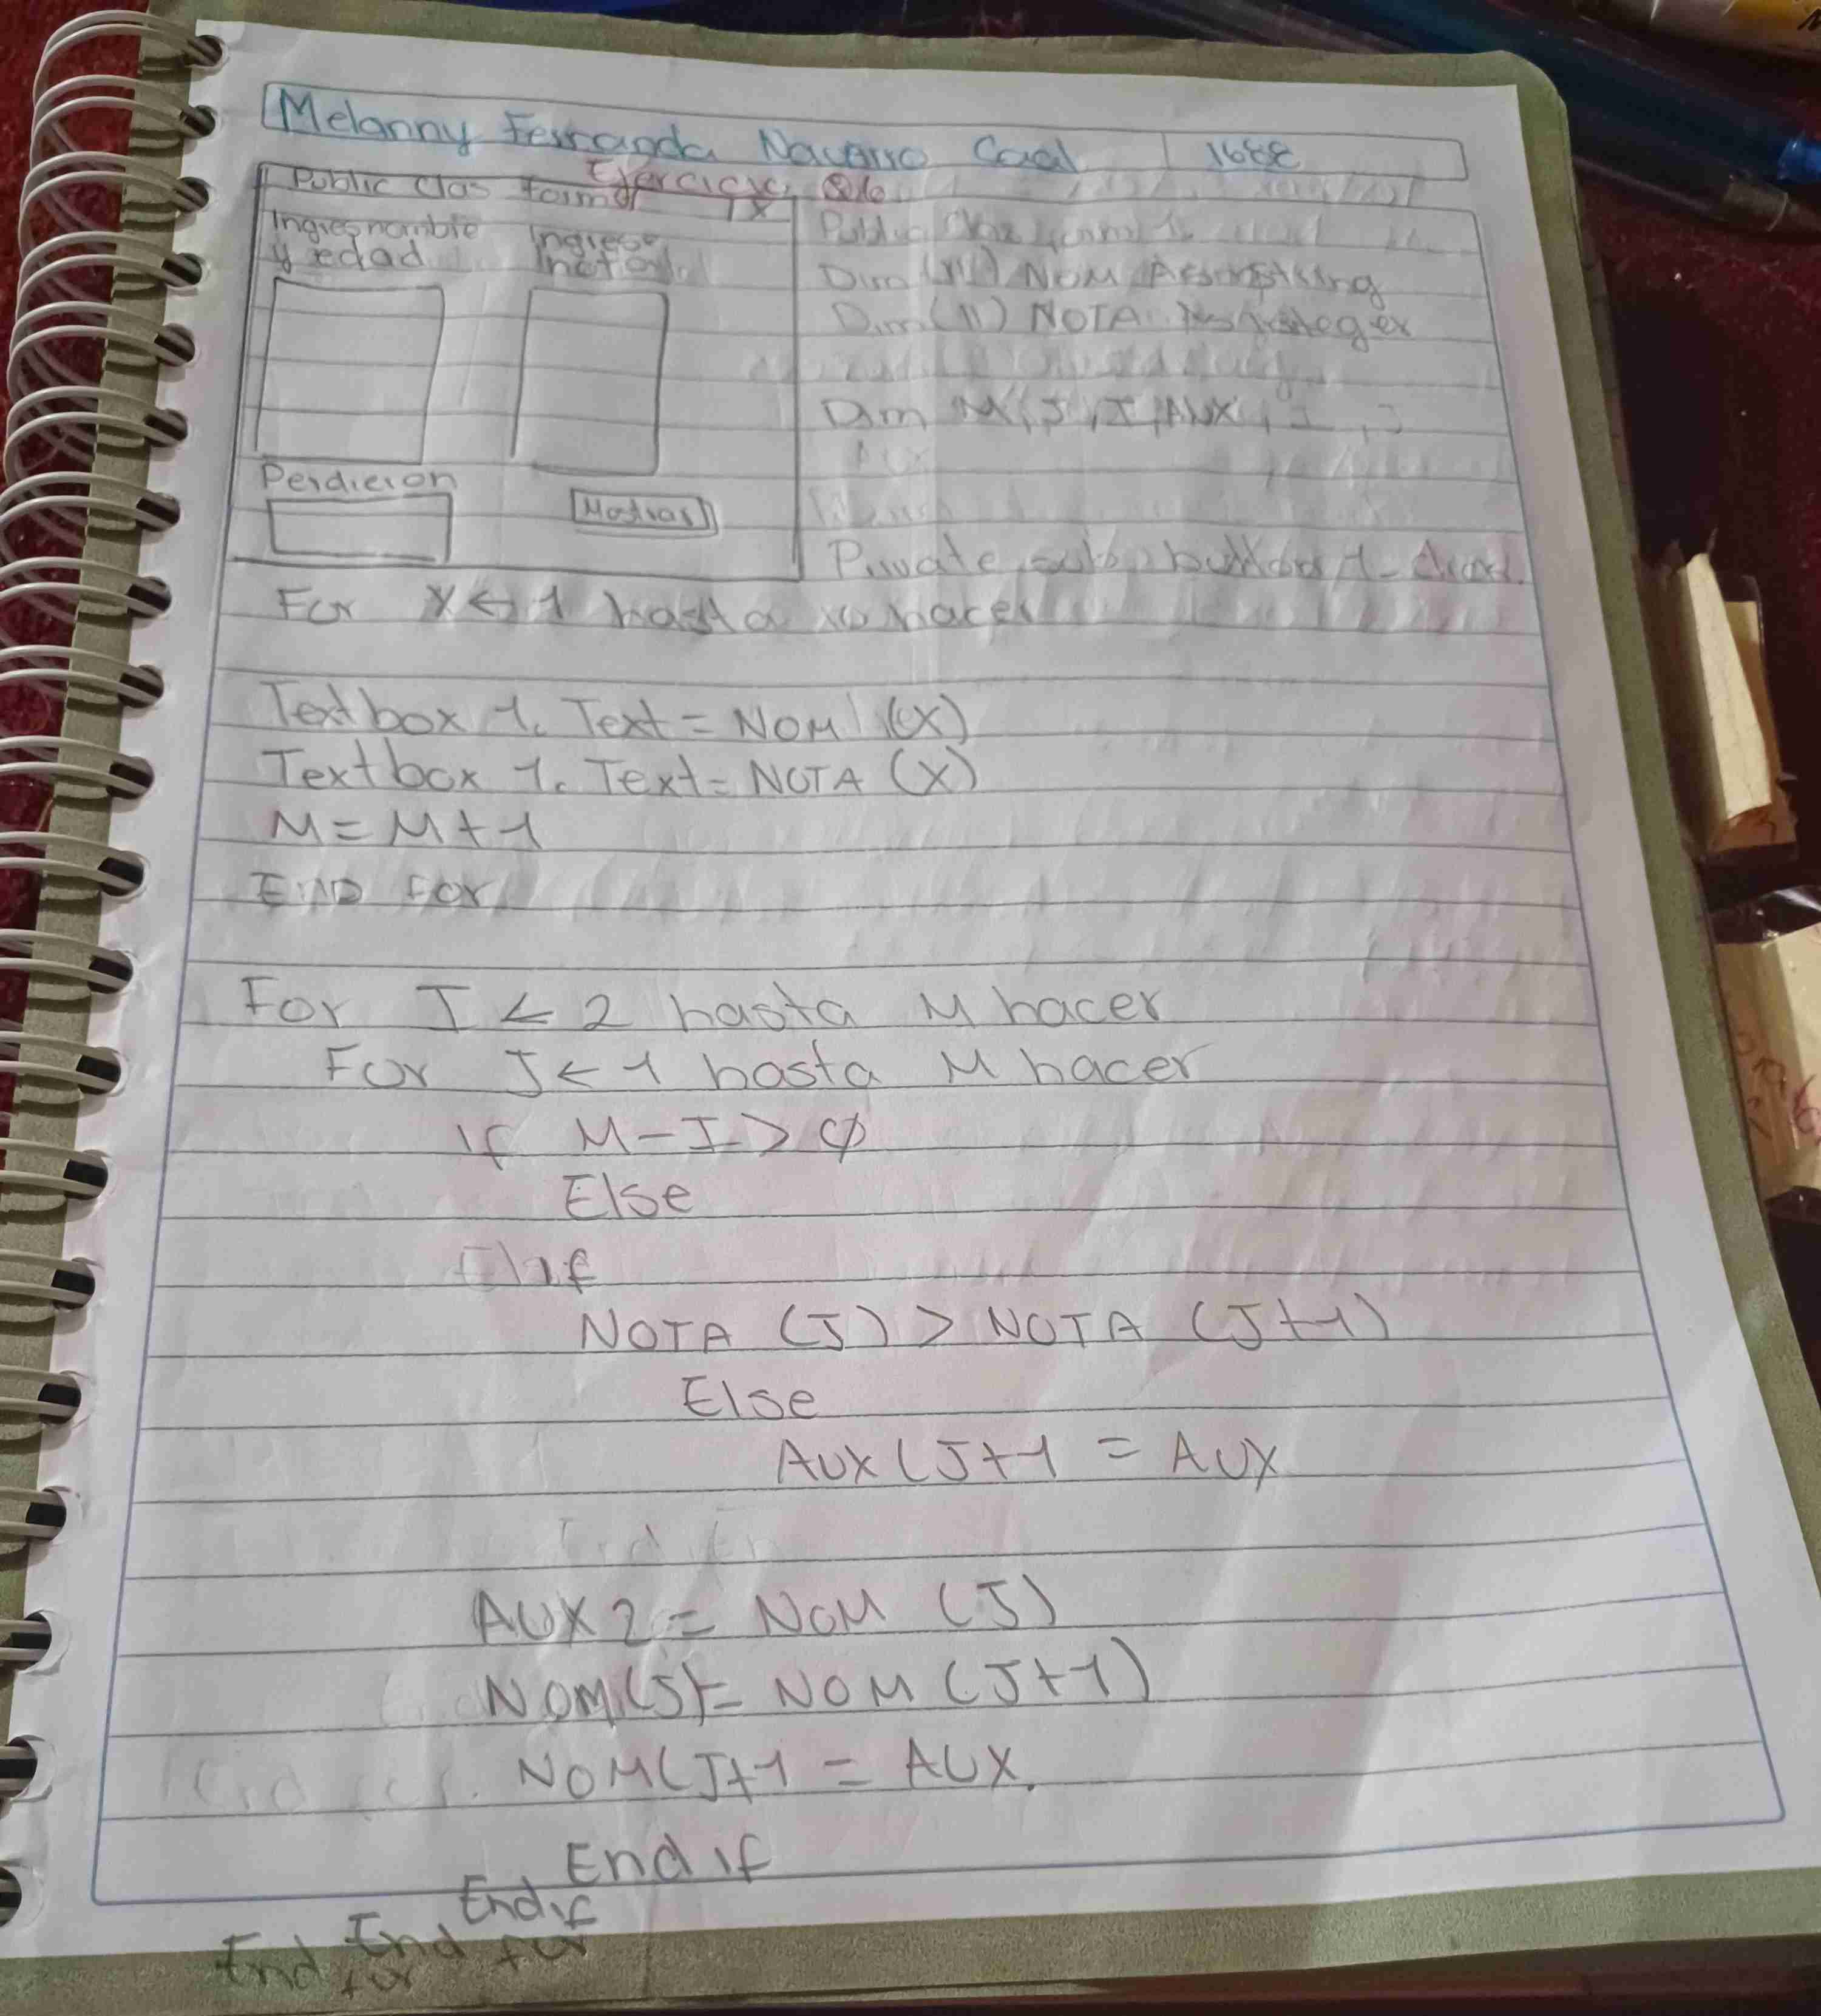 Melanny Fernanda Navarro Caal 1688
Ejercicio
Public Clas form
X
Ingres nombre
y edad
Ingrese
nota
Perdieron
Mostrar
Public
Dim (11) NOM As String
Dim (11) NOTA As integer
Dim M, J, I, AUX, I, J
Private sub button 1-
For X ← 1 hasta 10 hacer
Textbox 1. Text = NOM (X)
Textbox 1. Text = NOTA (X)
M = M + 1
END For
For I ← 2 hasta M hacer
For J ← 1 hasta M hacer
If M - I > 0
Else
NOTA (J) > NOTA (J+1)
Else
AUX (J+1 = AUX
AUX 2 = NOM (J)
NOM (J) = NOM (J+1)
NOM (J+1 = AUX
End if
End if
End for
End for